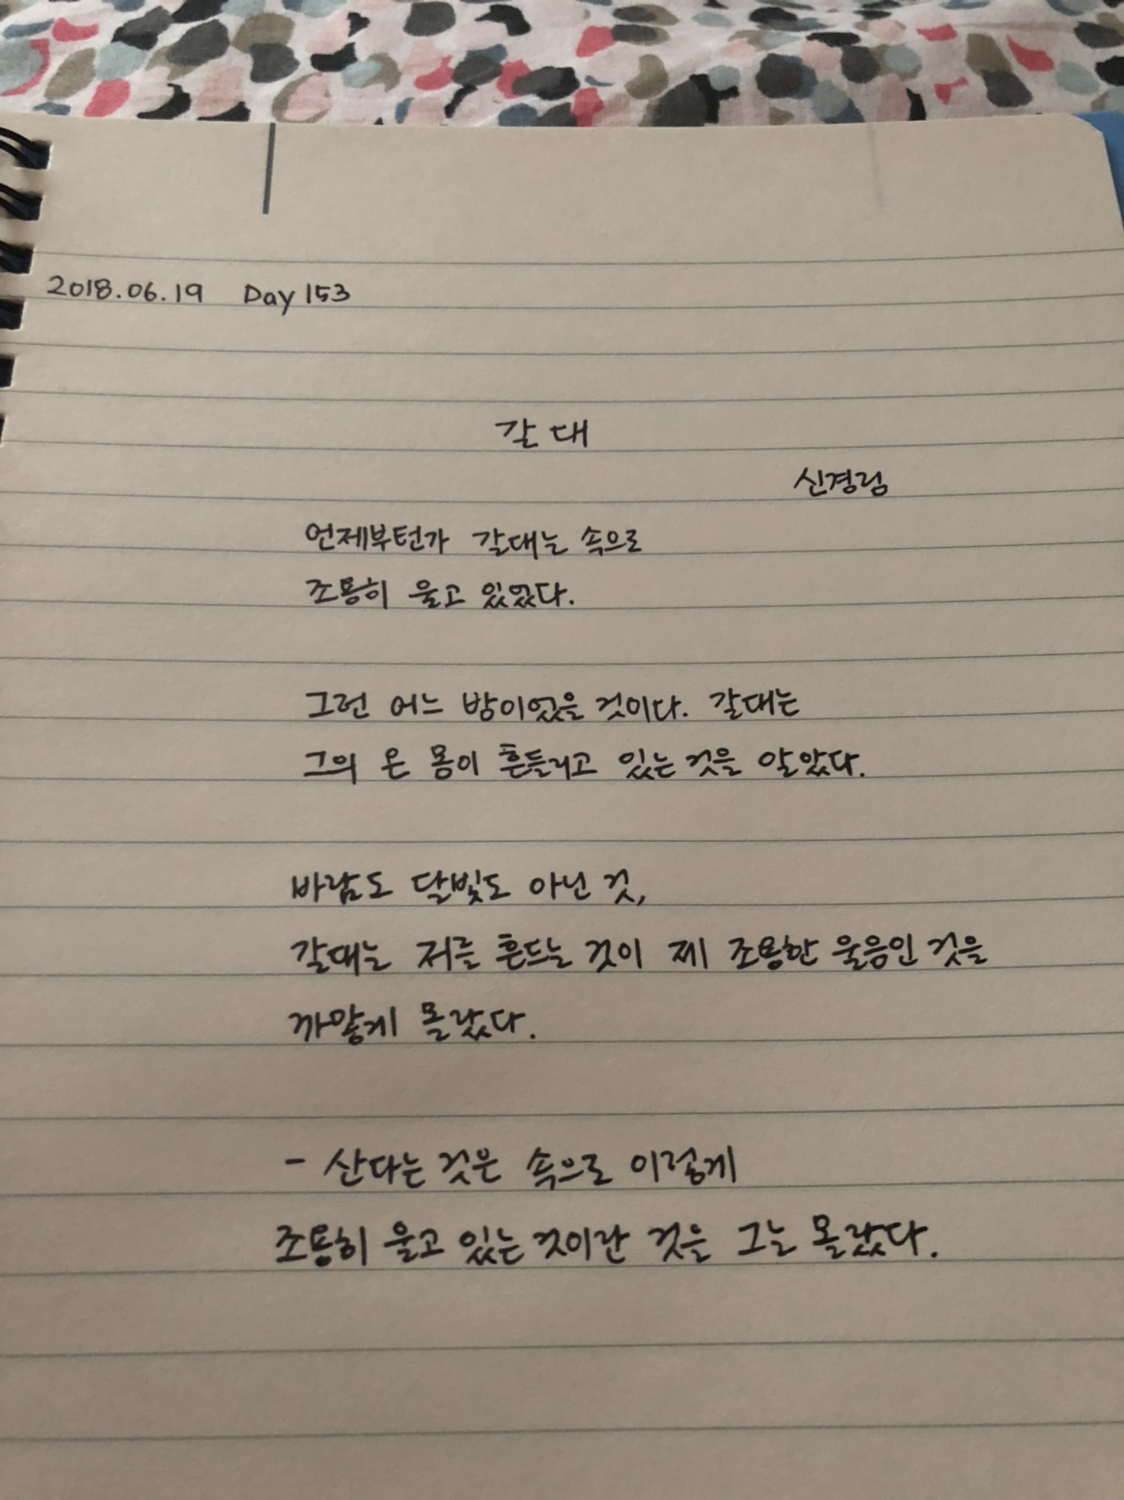 2018.06.19 Day 153
갈대
신경림
언제부턴가 갈대는 속으로
조용히 울고 있었다.
그런 어느 밤이었을 것이다. 갈대는
그의 온 몸이 흔들리고 있는 것을 알았다.
바람도 달빛도 아닌 것,
갈대는 저를 흔드는 것이 제 조용한 울음인 것을
까맣게 몰랐다.
- 산다는 것은 속으로 이렇게
조용히 울고 있는 것이란 것을 그는 몰랐다.